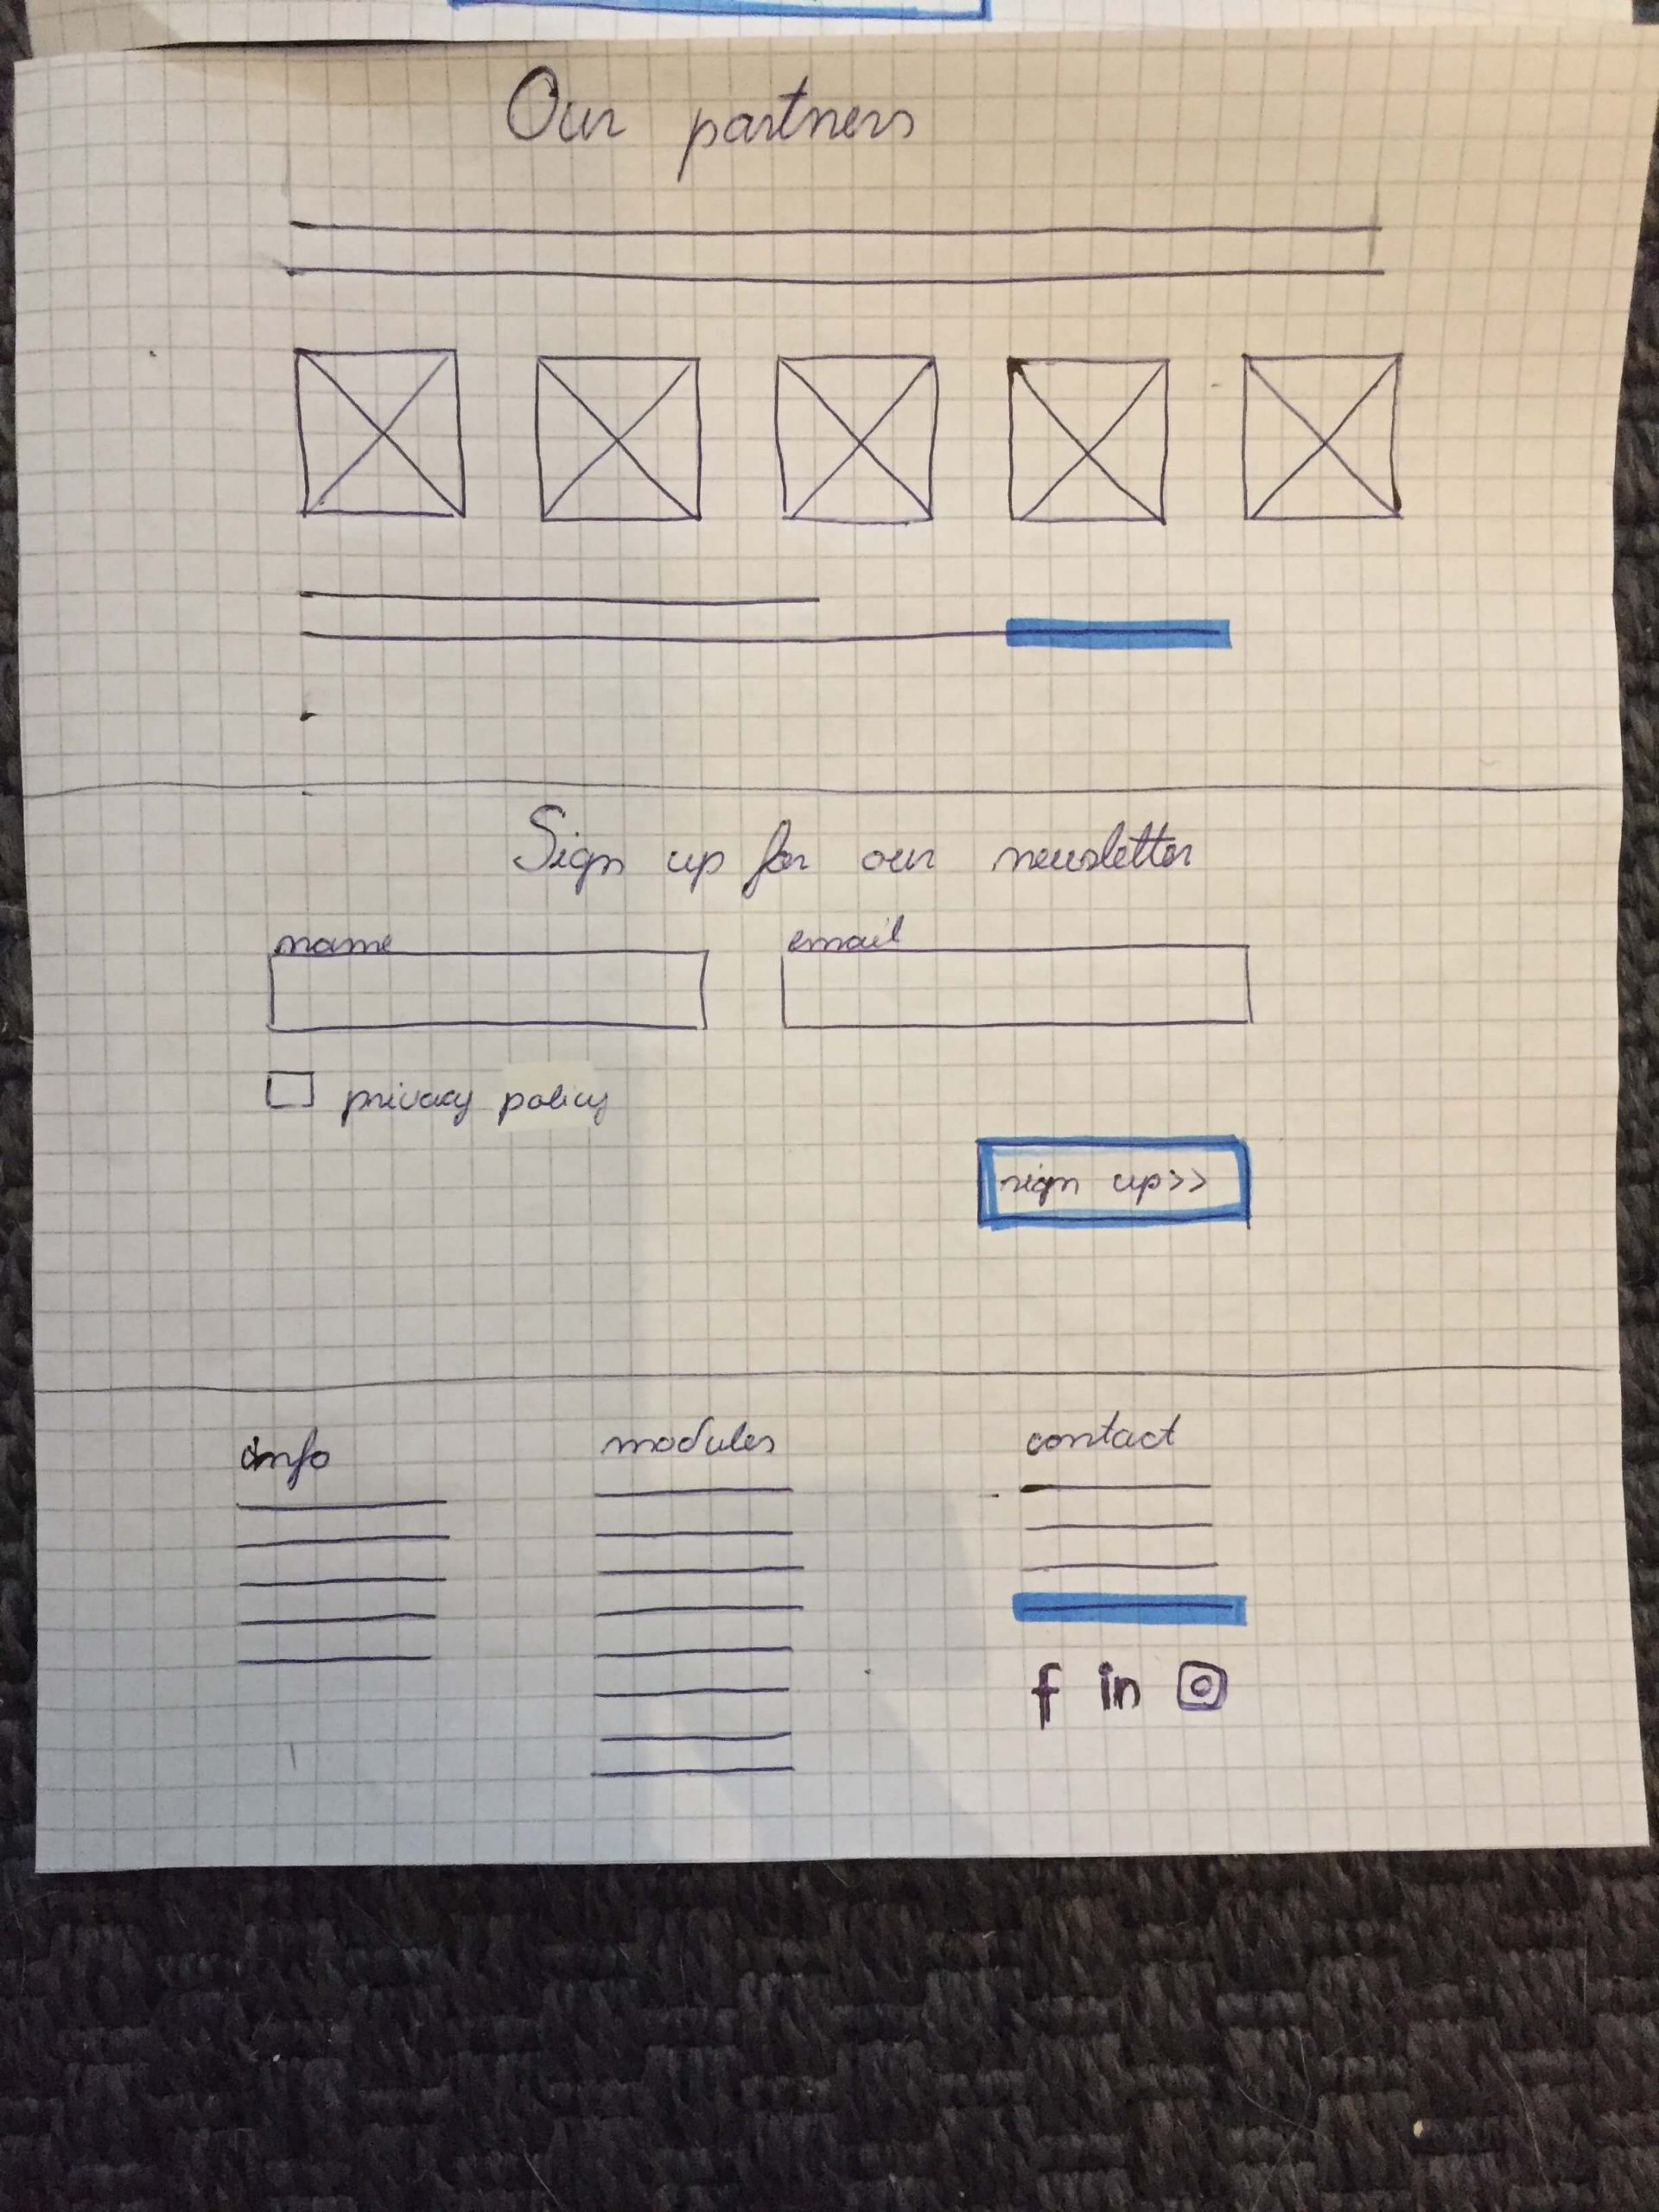 Our partners
Sign up for our newsletter
name email
privacy policy
sign up>>
info modules contact
f in